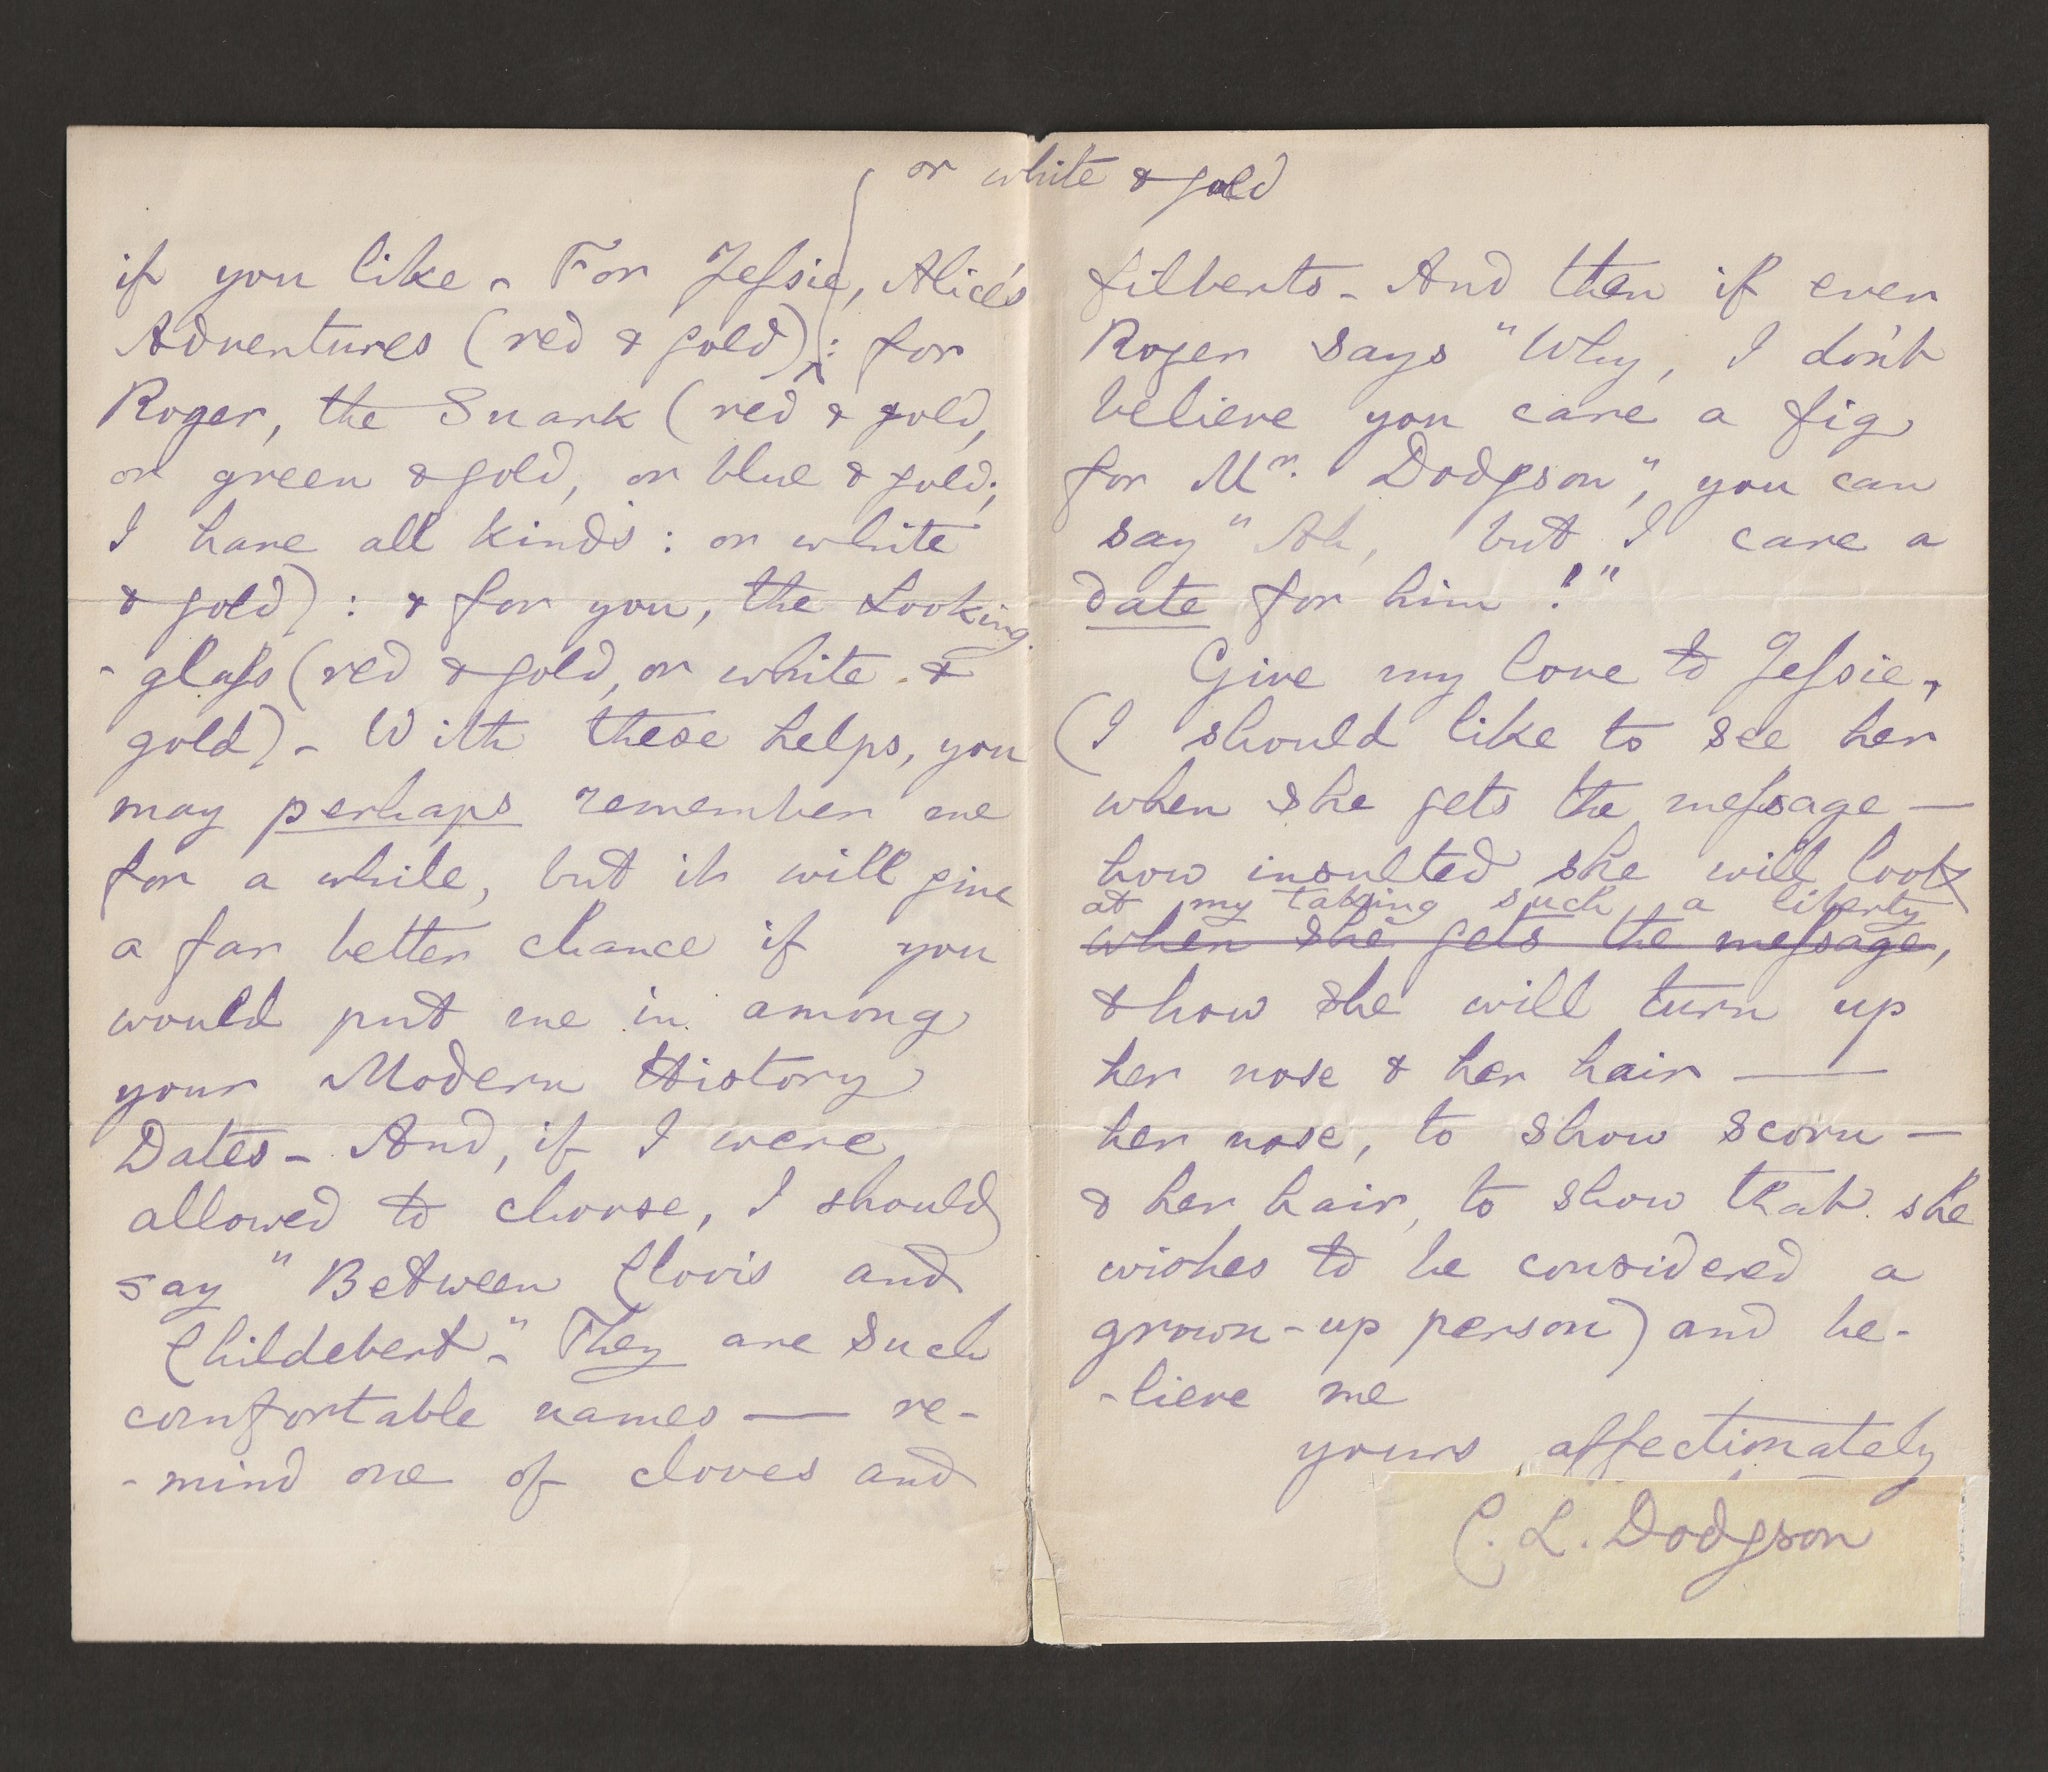 or white & gold
if you like - For Jessie, Alice's
Adventures (red & gold) : for
Roger, the Snark (red & gold,
or green & gold, or blue & gold;
I have all kinds: or white
& gold) : & for you, the Looking
-glass (red & gold, or white &
gold) - With these helps, you
may perhaps remember me
for a while, but it will give
a far better chance if you
would put me in among
your Modern History
Dates - And, if I were
allowed to choose, I should
say "Between Clovis and
Childebert" - They are such
comfortable names — re-
-mind one of cloves and
filberts - And then if ever
Roger says "Why, I don't
believe you care a fig
for Mr. Dodgson", you can
say "Ah, but I care a
date for him!"
Give my love to Jessie,
(I should like to see her
when she gets the message —
how insulted she will look
at my taking such a liberty
when she gets the message,
& how she will turn up
her nose & her hair —
her nose, to show scorn —
& her hair, to show that she
wishes to be considered a
grown-up person) and be-
-lieve me
yours affectionately
C. L. Dodgson